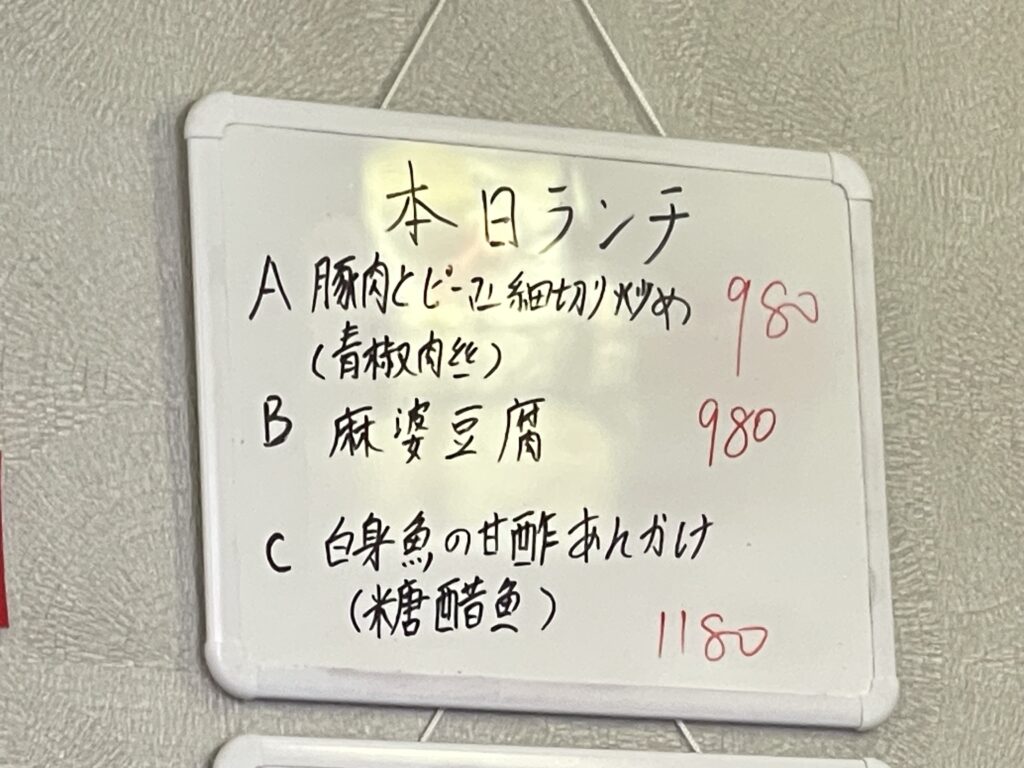 本日ランチ
A 豚肉とピーマン細切り炒め 980
(青椒肉丝)
B 麻婆豆腐 980
C 白身魚の甘酢あんかけ
(糖醋魚)
1180